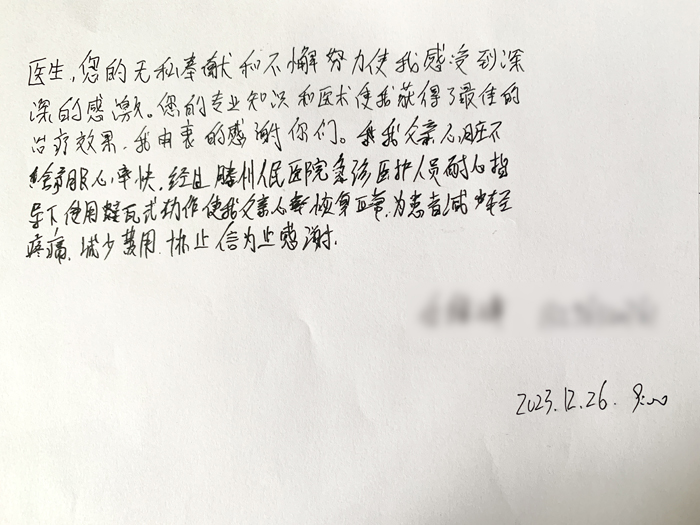 医生,您的无私奉献和不懈努力使我感受到深
深的感激。您的专业知识和医术使我获得了最佳的
治疗效果,我由衷的感谢你们。我父亲心脏不
舒服心率快,经过滕州人民医院急诊医护人员耐心指
导下使用瓦式动作使我父亲心率恢复正常,为患者减少
疼痛,减少费用.协止信为止感谢.
2023.12.26. 9:00